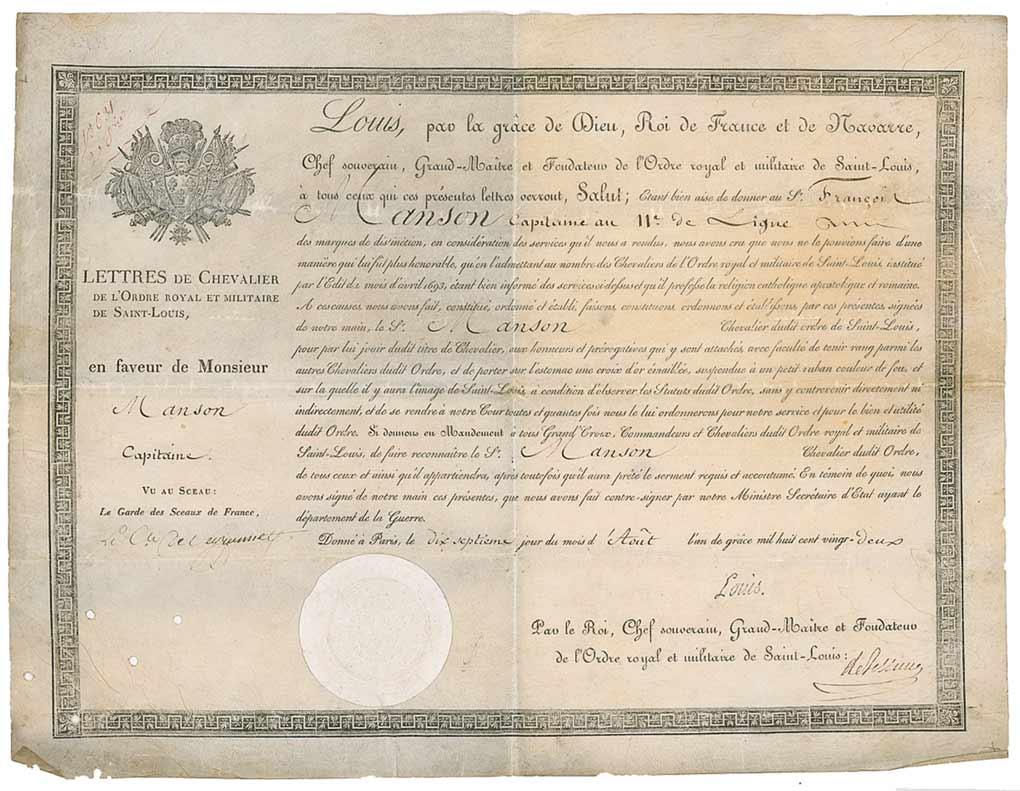 LETTRES DE CHEVALIER
DE L'ORDRE ROYAL ET MILITAIRE
DE SAINT-LOUIS,
en faveur de Monsieur
Manson
Capitaine.
VU AU SCEAU:
Le Garde des Sceaux de France,
Louis, par la grâce de Dieu, Roi de France et de Navarre,
Chef souverain, Grand-Maître et Fondateur de l'Ordre royal et militaire de Saint-Louis,
à tous ceux qui ces présentes lettres verront, Salut; Étant bien aise de donner au Sr. François
Manson Capitaine au 11e. de Ligne
des marques de distinction, en considération des services qu'il nous a rendus, nous avons cru que nous ne le pouvions faire d'une
manière qui lui fut plus honorable, qu'en l'admettant au nombre des Chevaliers de l'Ordre royal et militaire de Saint-Louis, institué
par l'Edit du mois d'avril 1693, étant bien informé des services ci-dessus et qu'il professe la religion catholique apostolique et romaine.
A ces causes, nous avons fait, constitué, ordonné et établi, faisons, constituons, ordonnons et établissons, par ces présentes signées
de notre main, le Sr. Manson Chevalier dudit ordre de Saint-Louis,
pour par lui jouir dudit titre de Chevalier, aux honneurs et prérogatives qui y sont attachés, avec faculté de tenir rang parmi les
autres Chevaliers dudit Ordre, et de porter sur l'estomac une croix d'or émaillée, suspendue à un petit ruban couleur de feu, et
sur laquelle il y aura l'image de Saint-Louis, à condition d'observer les Statuts dudit Ordre, sans y contrevenir directement ni
indirectement, et de se rendre à notre Cour toutes et quantes fois nous le lui ordonnerons pour notre service et pour le bien et utilité
dudit Ordre. Si donnons en Mandement à tous Grand'Croix, Commandeurs et Chevaliers dudit Ordre royal et militaire de
Saint-Louis, de faire reconnaître le Sr. Manson Chevalier dudit Ordre,
de tous ceux et ainsi qu'il appartiendra, après toutefois qu'il aura prêté le serment requis et accoutumé. En témoin de quoi, nous
avons signé de notre main ces présentes, que nous avons fait contre-signer par notre Ministre Secrétaire d'Etat ayant le
département de la Guerre.
Donné à Paris, le dix septieme jour du mois d'Août l'an de grâce mil huit cent vingt-deux
Louis.
Par le Roi, Chef souverain, Grand-Maître et Fondateur
de l'Ordre royal et militaire de Saint-Louis: